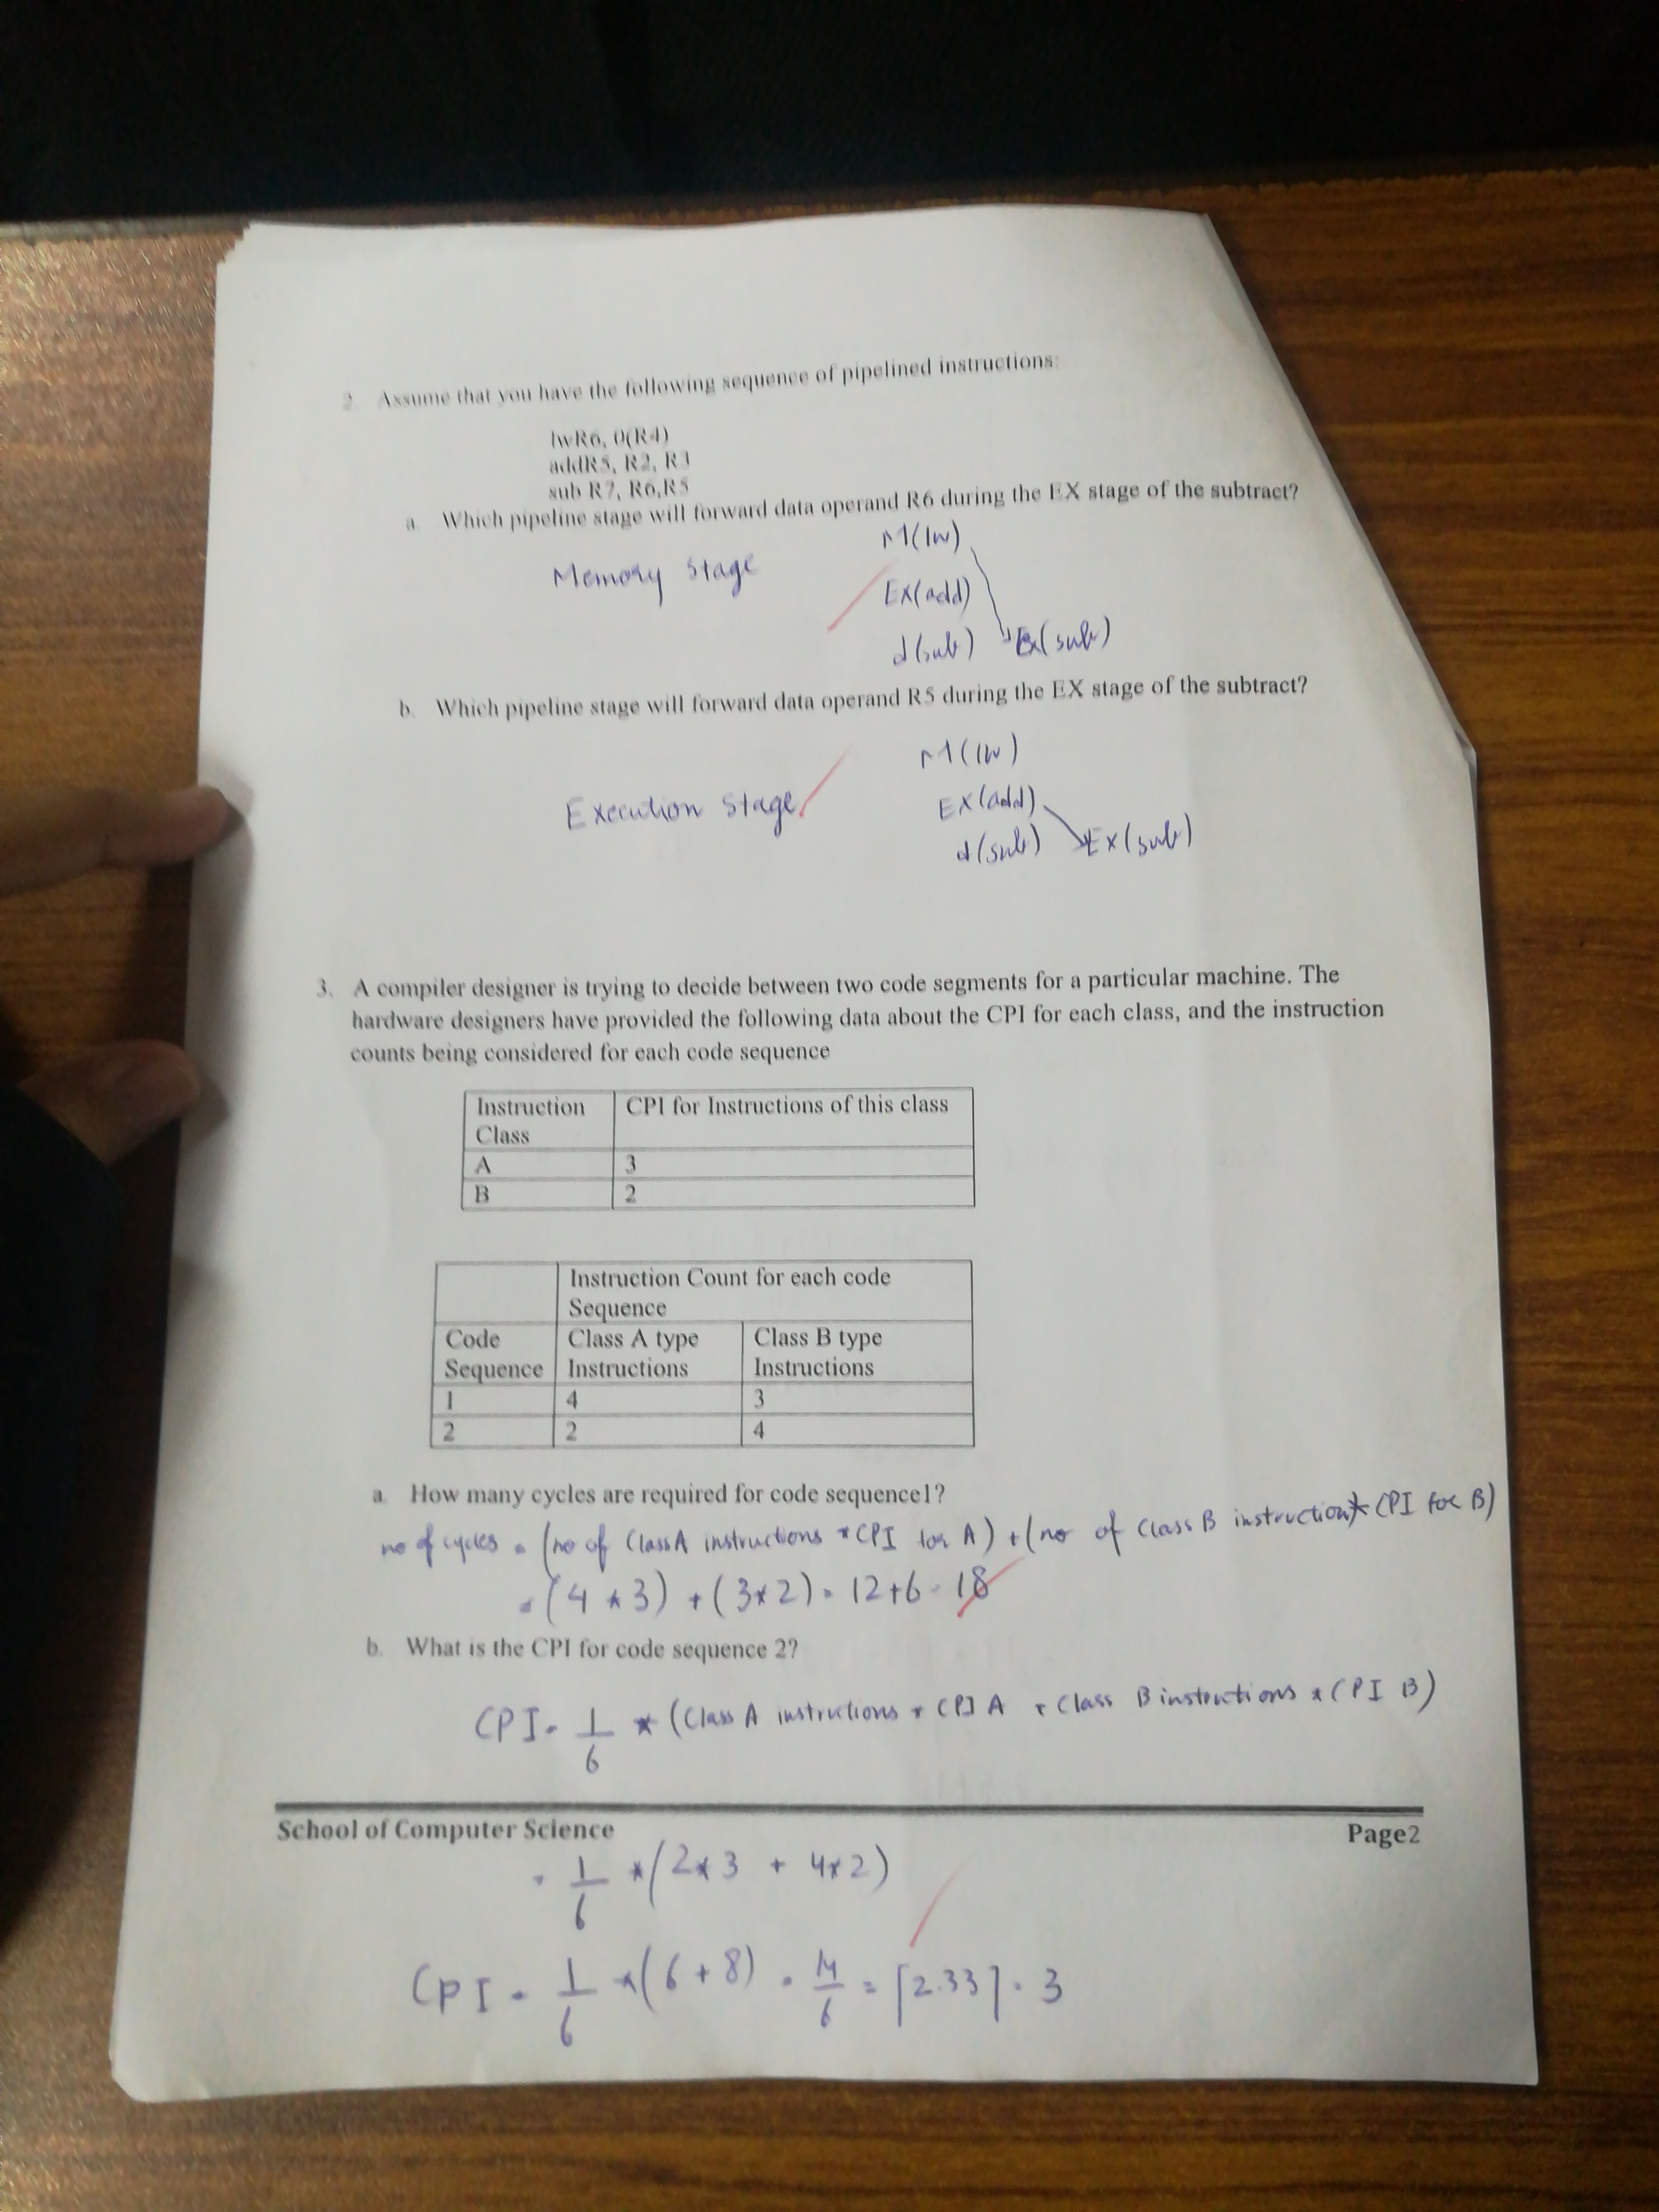 2. Assume that you have the following sequence of pipelined instructions:
lwR6, 0(R4)
addR5, R2, R3
sub R7, R6,R5
a. Which pipeline stage will forward data operand R6 during the EX stage of the subtract?
M(lw)
Memory Stage
Ex(add)
d(sub) Ex(sub)
b. Which pipeline stage will forward data operand R5 during the EX stage of the subtract?
M(lw)
Execution Stage.
Ex(add)
d(sub) Ex(sub)
3. A compiler designer is trying to decide between two code segments for a particular machine. The
hardware designers have provided the following data about the CPI for each class, and the instruction
counts being considered for each code sequence
Instruction Class CPI for Instructions of this class
A 3
B 2
Instruction Count for each code
Sequence
Code Class A type Class B type
Sequence Instructions Instructions
1 4 3
2 2 4
a. How many cycles are required for code sequence1?
no of cycles = (no of Class A instructions * CPI for A) + (no of Class B instruction * CPI for B)
= (4 * 3) + (3*2) = 12+6 = 18
b. What is the CPI for code sequence 2?
CPI = 1/6 * (Class A instructions * CPI A + Class B instructions * CPI B)
School of Computer Science Page2
= 1/6 * (2*3 + 4*2)
CPI = 1/6 * (6+8) = 14/6 = ⌈2.33⌉ = 3